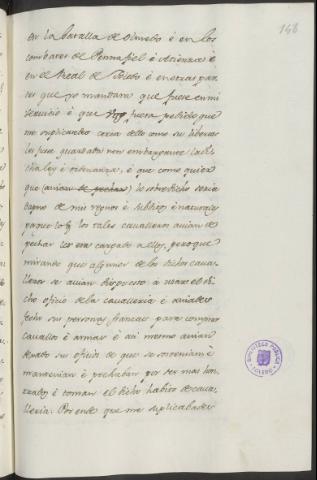 148
en la batalla de Olmedo è en los
combates de Pennafiel è Atienza è
en el Real de Toledo è en otras par
tes que yo mandara que fuese en mi
servicio è que fuera pedido que
me suplicasdes cerca dello como su libertad
les fuse guardada non embargante la di
cha ley è ordenanza, è que como quier
que (avian de pechar) lo sobredicho seria
bueno de mis regnos è subditos è naturales
porque los tales cavalleros avian de
pechar les era cargado a ellos, pero que
mirando que algunos de los dichos cava
lleros se avian dispuesto a usar el di
cho oficio de la cavalleria è
sus personas francas para comprar
cavallos è armas è asi mesmo avian
dexado su oficio de que se sostenian è
mantenian è pechaban por ser mas hon
rados è toman el dicho habito de cava
lleria. Por ende que me suplicabades
BIBLIOTECA PUBLICA
TOLEDO